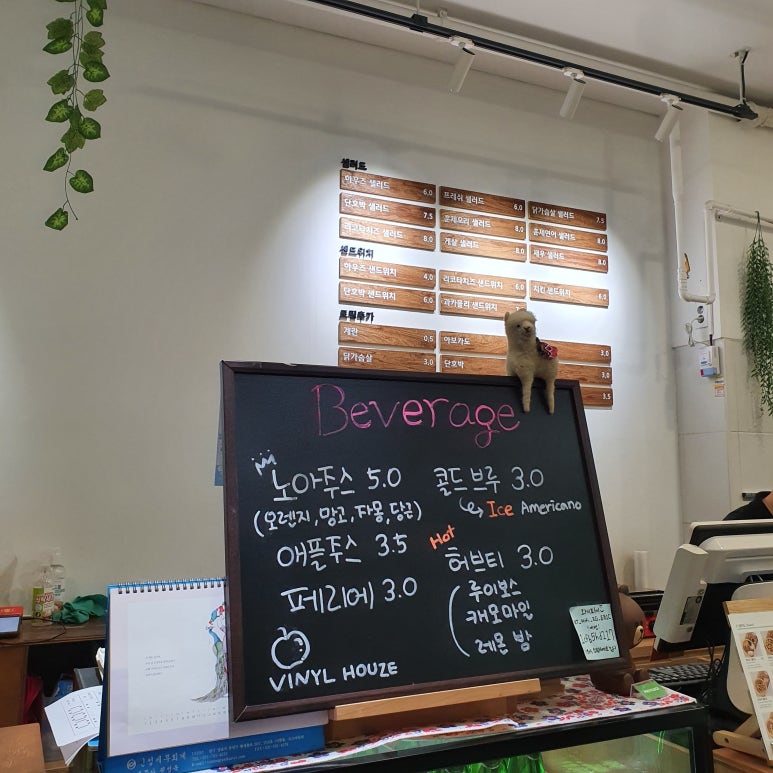 샐러드
하우즈 샐러드 6.0
프레쉬 샐러드 6.0
닭가슴살 샐러드 7.5
단호박 샐러드 7.5
훈제오리 샐러드 8.0
훈제연어 샐러드 8.0
리코타치즈 샐러드 8.0
게살 샐러드 8.0
새우 샐러드 8.0
샌드위치
하우즈 샌드위치 4.0
리코타치즈 샌드위치 6.0
치킨 샌드위치 6.0
단호박 샌드위치 6.0
과카몰리 샌드위치 6.0
토핑추가
계란 0.5
아보카도 3.0
닭가슴살 3.0
단호박 3.0
3.5
Beverage
노아주스 5.0
(오렌지, 망고, 자몽, 당근)
애플주스 3.5
페리에 3.0
VINYL HOUZE
콜드브루 3.0
Ice Americano
Hot
허브티 3.0
루이보스
캐모마일
레몬 밤